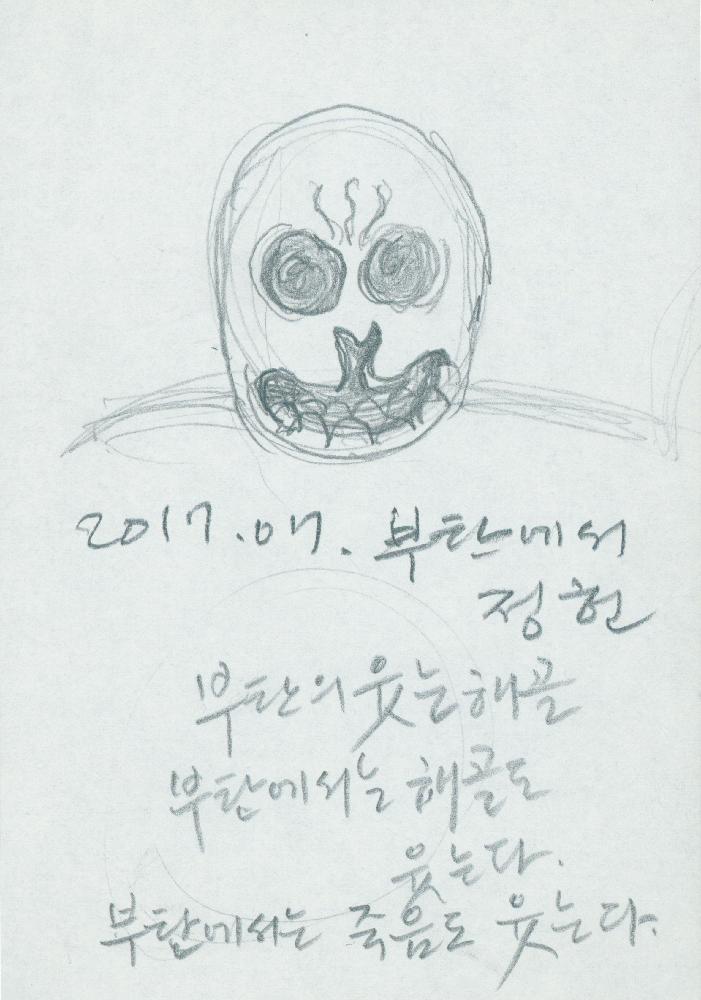 2017.07. 부탄에서
정헌
부탄의 웃는 해골
부탄에서는 해골도
웃는다.
부탄에서는 죽음도 웃는다.